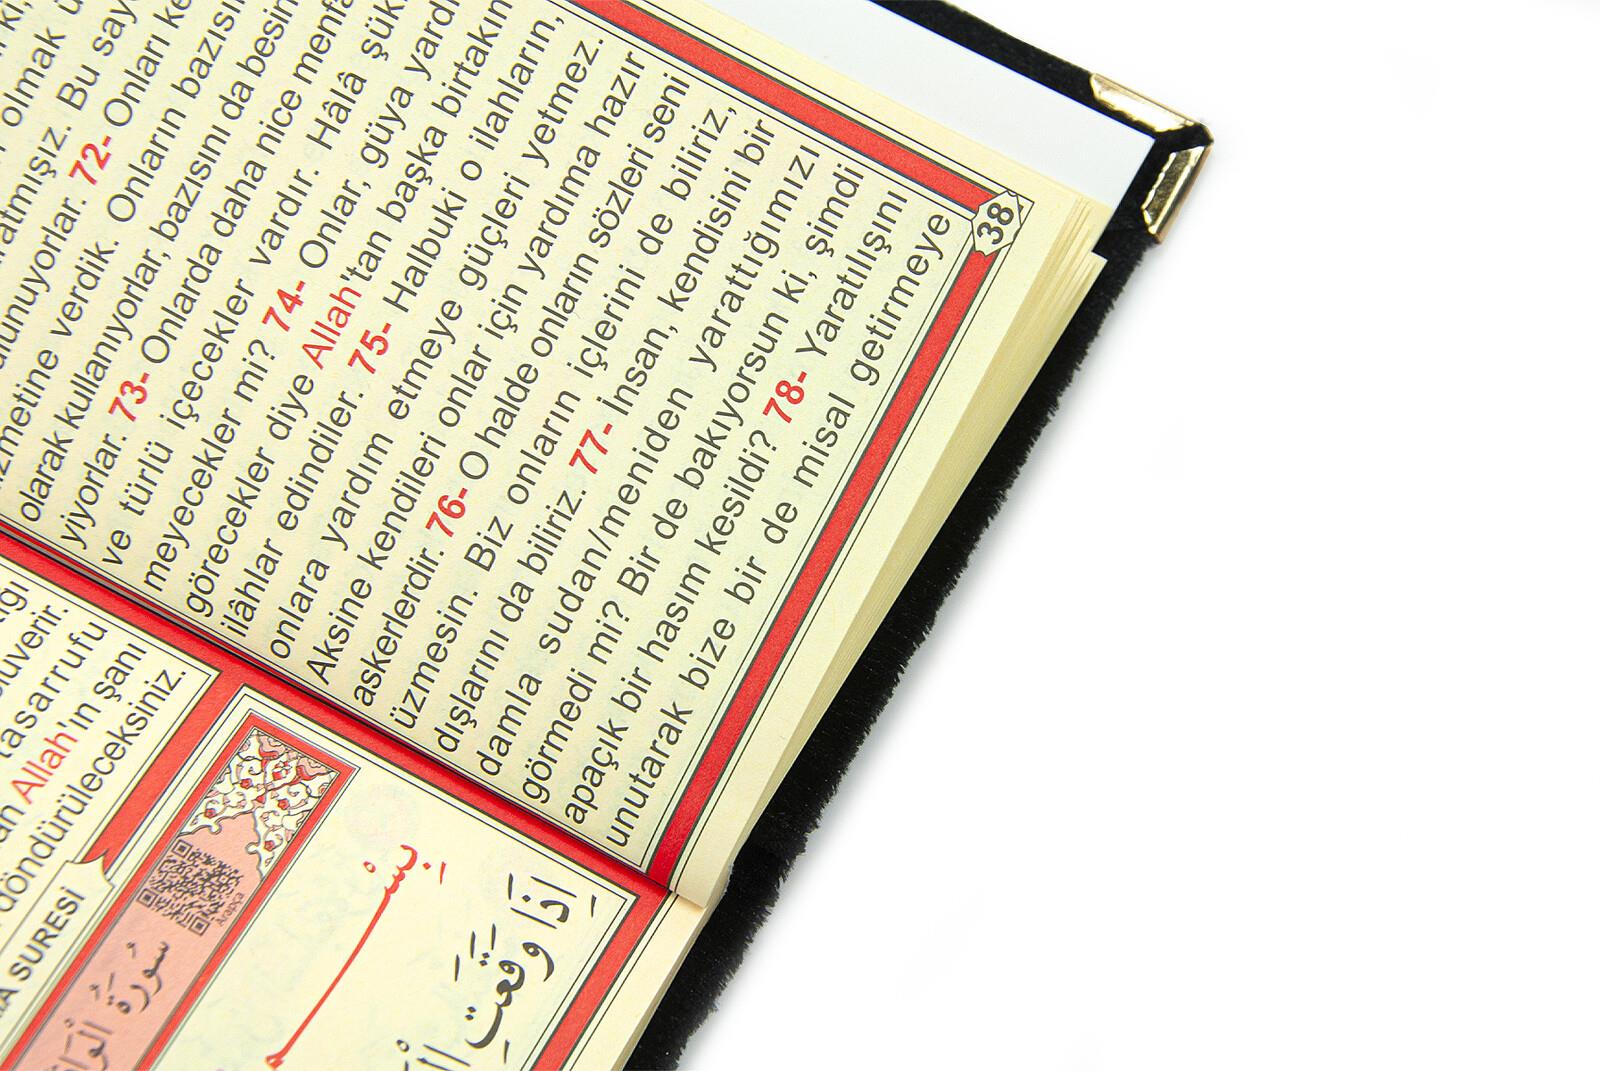 olmak
atmışız. Bu
72- Onları
verdik. Onların
olarak kullanıyorlar, bazısını da
yiyorlar. 73- Onlarda daha nice
ve türlü içecekler vardır. Hâlâ
meyecekler mi? 74- Onlar, güya
görecekler diye Allah'tan başka birtakım
ilâhlar edindiler. 75- Halbuki o ilahların,
onlara yardım etmeye güçleri yetmez.
Aksine kendileri onlar için yardıma hazır
askerlerdir. 76- O halde onların sözleri seni
üzmesin. Biz onların içlerini de biliriz,
dışlarını da biliriz. 77- İnsan, kendisini bir
damla sudan/meniden yarattığımızı
görmedi mi? Bir de bakıyorsun ki, şimdi
apaçık bir hasım kesildi? 78- Yaratılışını
unutarak bize bir de misal getirmeye
38
tasarrufu
Allah'ın şanı
döndürüleceksiniz.
SURESİ
Arapça
سُورَةُ
إِذَا وَقَعَتِ